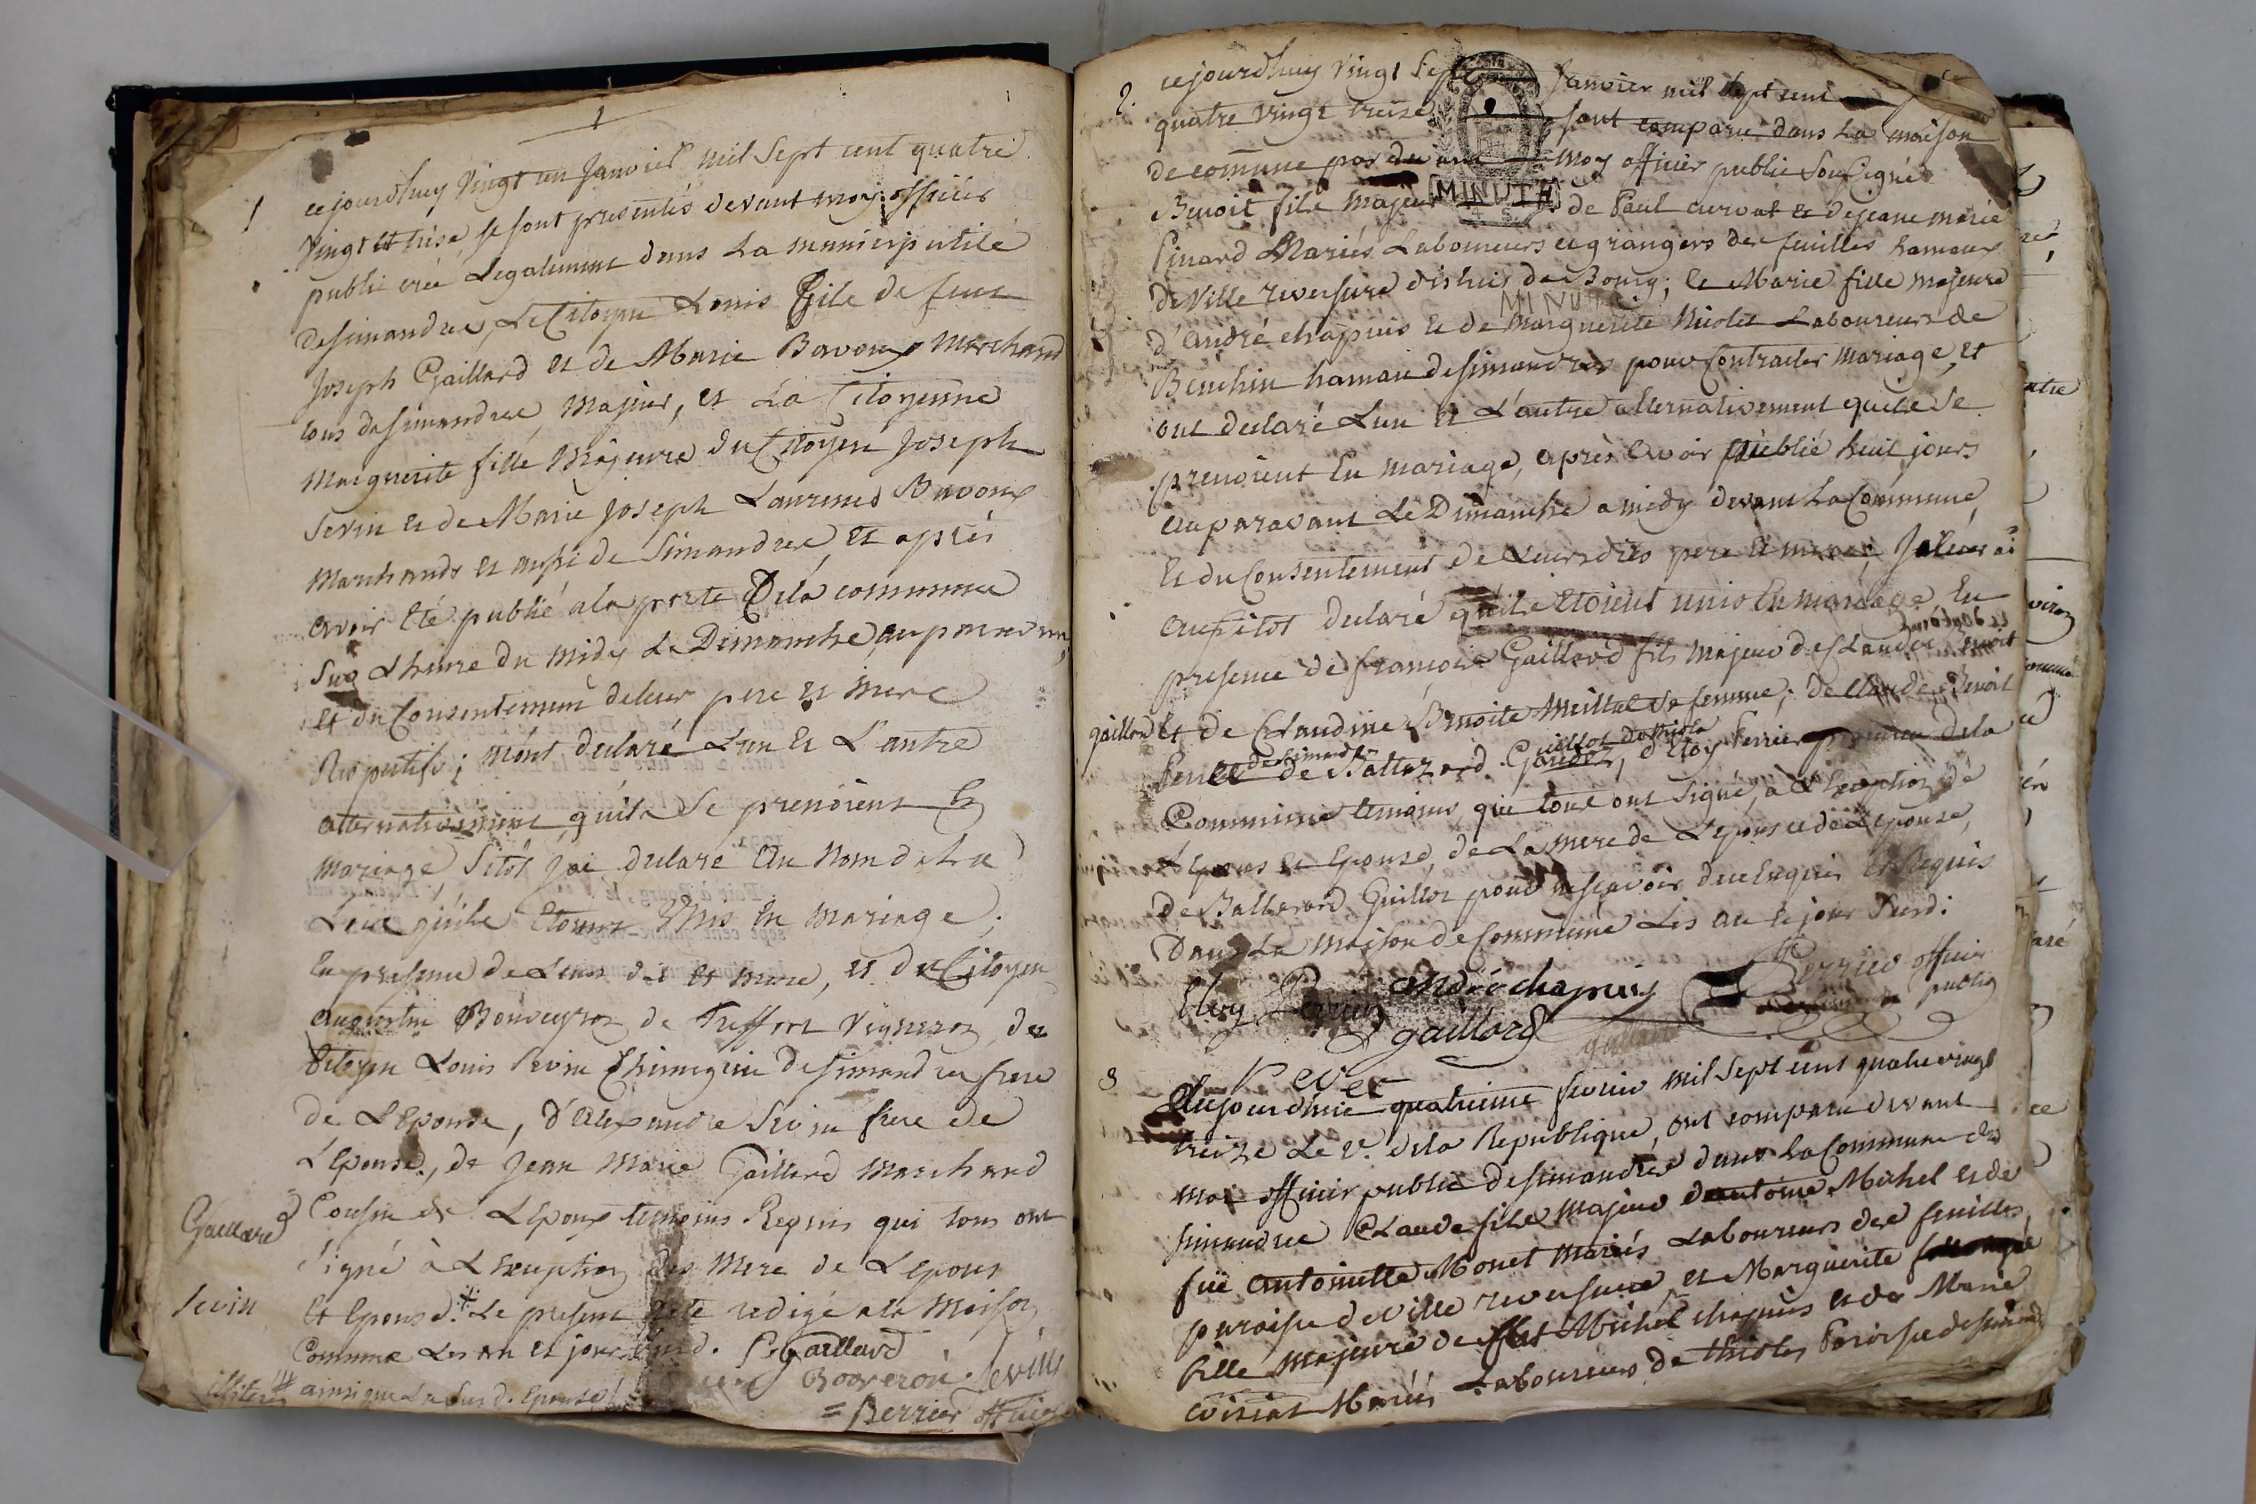 1
1
cejourdhuy Vingt un Janvier mil Sept cent quatre
Vingt et trése se sont presentés devant moy officier
public créé Legalement dans La municipalité
desimandres, Le Citoyen Louis file de feu
Joseph Gaillard et de Marie Bavoux Marchand
tous de Simandre, Majeur, et La Citoyenne
Marguerite fille Majeure du Citoyen Joseph
Sevin et de Marie Joseph Laurence Bavoux
Marchands et aussi de Simandre, et après
avoir été publié ala porte Dela commune
Sur L'heure du midy Le Dimanche auparavant,
et du Consentement deleur pere et mere
Respectifs; m'ont declaré L'un et L'autre
alternativement qu'ils Se prenoient En
mariage Sitôt J'ai declaré Au Nom de La
Loix qu'ils Etoient Unis En Mariage;
En presence de Leurs et mere, et du Citoyen
augustin de Treffort Vigneron, du
Citoyen Louis Sevin Chirurgien desimandre frere
de L'Epouse, d'Alexandre Sevin frere de
L'Epouse, de Jean Marie Gaillard Marchand
Gaillard
Cousin de L'Epoux temoins Requis qui tous ont
Signé à L'Exception des Mere de L'epoux
Sevin
et Epouse. + Le present acte redigé ala Maison
Commune Les an et jour susd. Gaillard
ainsi que La susd. Epouse
Sevin
= Perrier officier
2.
cejourdhuy Vingt Sept Janvier mil Sept cent
quatre Vingt treize sont comparu dans La maison
de commune par devant moy officier public Soussigné
MINUTE
Benoit fils Majeur de Paul curvat et de jeane marie
Pinard Mariés Laboureurs et grangers des feuilles hameau
de Ville reversure district de Bourg; et Marie fille majeure
MINUTE
d'andré chapuis et de Marguerite Nicolet Laboureurs de
Beuchin hamau desimandres pour Contracter Mariage, et
ont declaré L'un et L'autre alternativement quils Se
prenoient En mariage, après avoir publié huit jours
auparavant Le Dimanche a midy devant La Commune,
et du Consentement de Leursdits pere et mere,
aussitot declaré qu'ils Etoient unis En mariage En
presence de françois Gaillard fils Majeur de Claude
gaillard
et de Claudine Benoite Meillat Sa femme; de Claude Benoit
de Baltazard, d'Eloy Perrier de la
Commune temoins, qui tous ont Signé, à L'Exception de
L'Epoux et Epouse, de La mere de L'epoux et de L'epouse,
de Baltazard Guillot pour ne sçavoir de ce Enquis et Requis
Dans La Maison de Commune Les an et jour Susd:
Perrier officier
public
Eloy Perrier andré chapuis
gaillard
3
Aujourd'hui quatrieme fevrier mil Sept cent quatre vingt
treize Le 2e. dela Republique, ont comparu devant
moi officier public desimandres dans La Commune de
simandre Claude file Majeur dantoine Michel et de
füe antoinette Monet Mariés Laboureurs des feuilles,
paroisse de Ville reversure, et Marguerite
fille Majeure de Michel chapuis et de Marie
Mariés Laboureurs de Paroisse desimandre